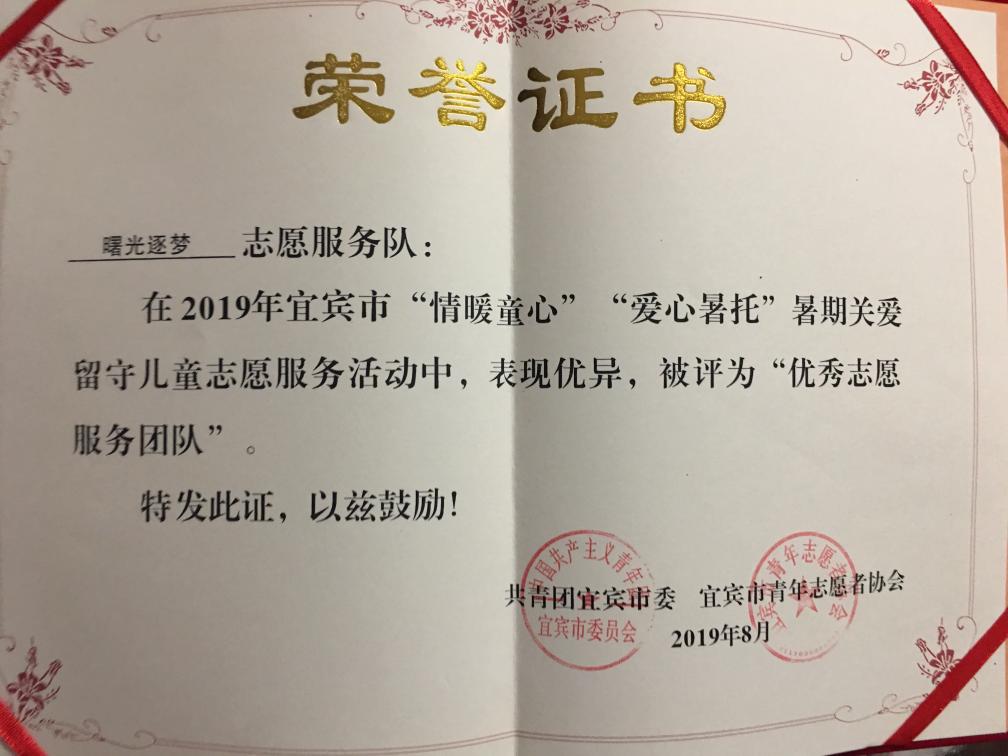 荣誉证书
曙光逐梦 志愿服务队：
在2019年宜宾市“情暖童心”“爱心暑托”暑期关爱
留守儿童志愿服务活动中，表现优异，被评为“优秀志愿
服务团队”。
特发此证，以兹鼓励！
共青团宜宾市委 宜宾市青年志愿者协会
2019年8月
中国共产主义青年团
宜宾市委员会
宜宾市青年志愿者协会